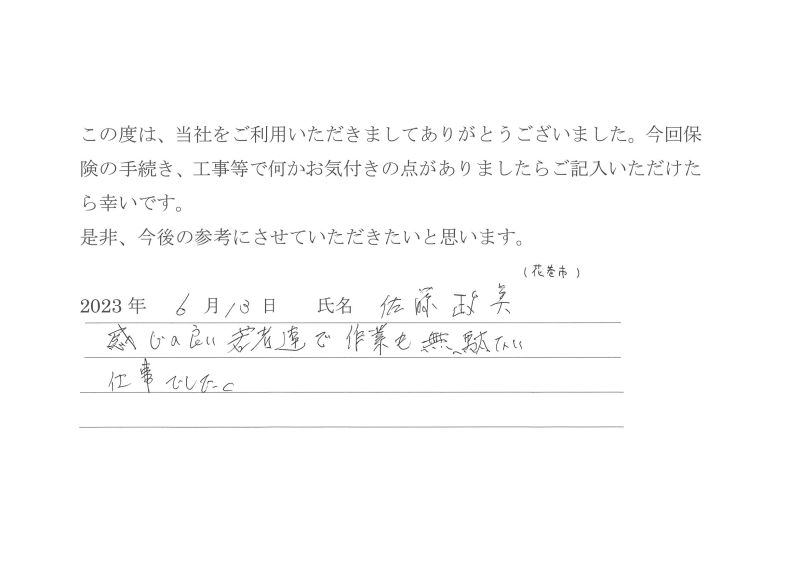 この度は、当社をご利用いただきましてありがとうございました。今回保
険の手続き、工事等で何かお気付きの点がありましたらご記入いただけた
ら幸いです。
是非、今後の参考にさせていただきたいと思います。
(花巻市)
2023年 6月13日 氏名 佐藤政美
感じの良い若者達で作業も無駄ない
仕事でした。